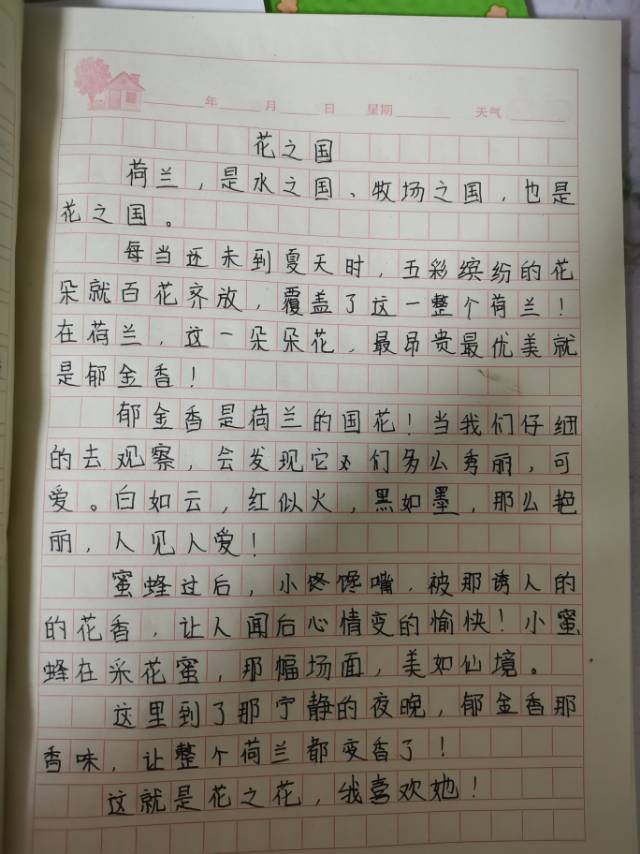 年 月 日 星期 天气
花之国
荷兰，是水之国、牧场之国，也是
花之国。
每当还未到夏天时，五彩缤纷的花
朵就百花齐放，覆盖了这一整个荷兰！
在荷兰，这一朵朵花，最昂贵最优美就
是郁金香！
郁金香是荷兰的国花！当我们仔细
的去观察，会发现它们多么秀丽，可
爱。白如云，红似火，黑如墨，那么艳
丽，人见人爱！
蜜蜂过后，小馋馋嘴，被那诱人的
的花香，让人闻后心情变的愉快！小蜜
蜂在采花蜜，那幅场面，美如仙境。
这里到了那宁静的夜晚，郁金香那
香味，让整个荷兰都变香了！
这就是花之花，我喜欢她！